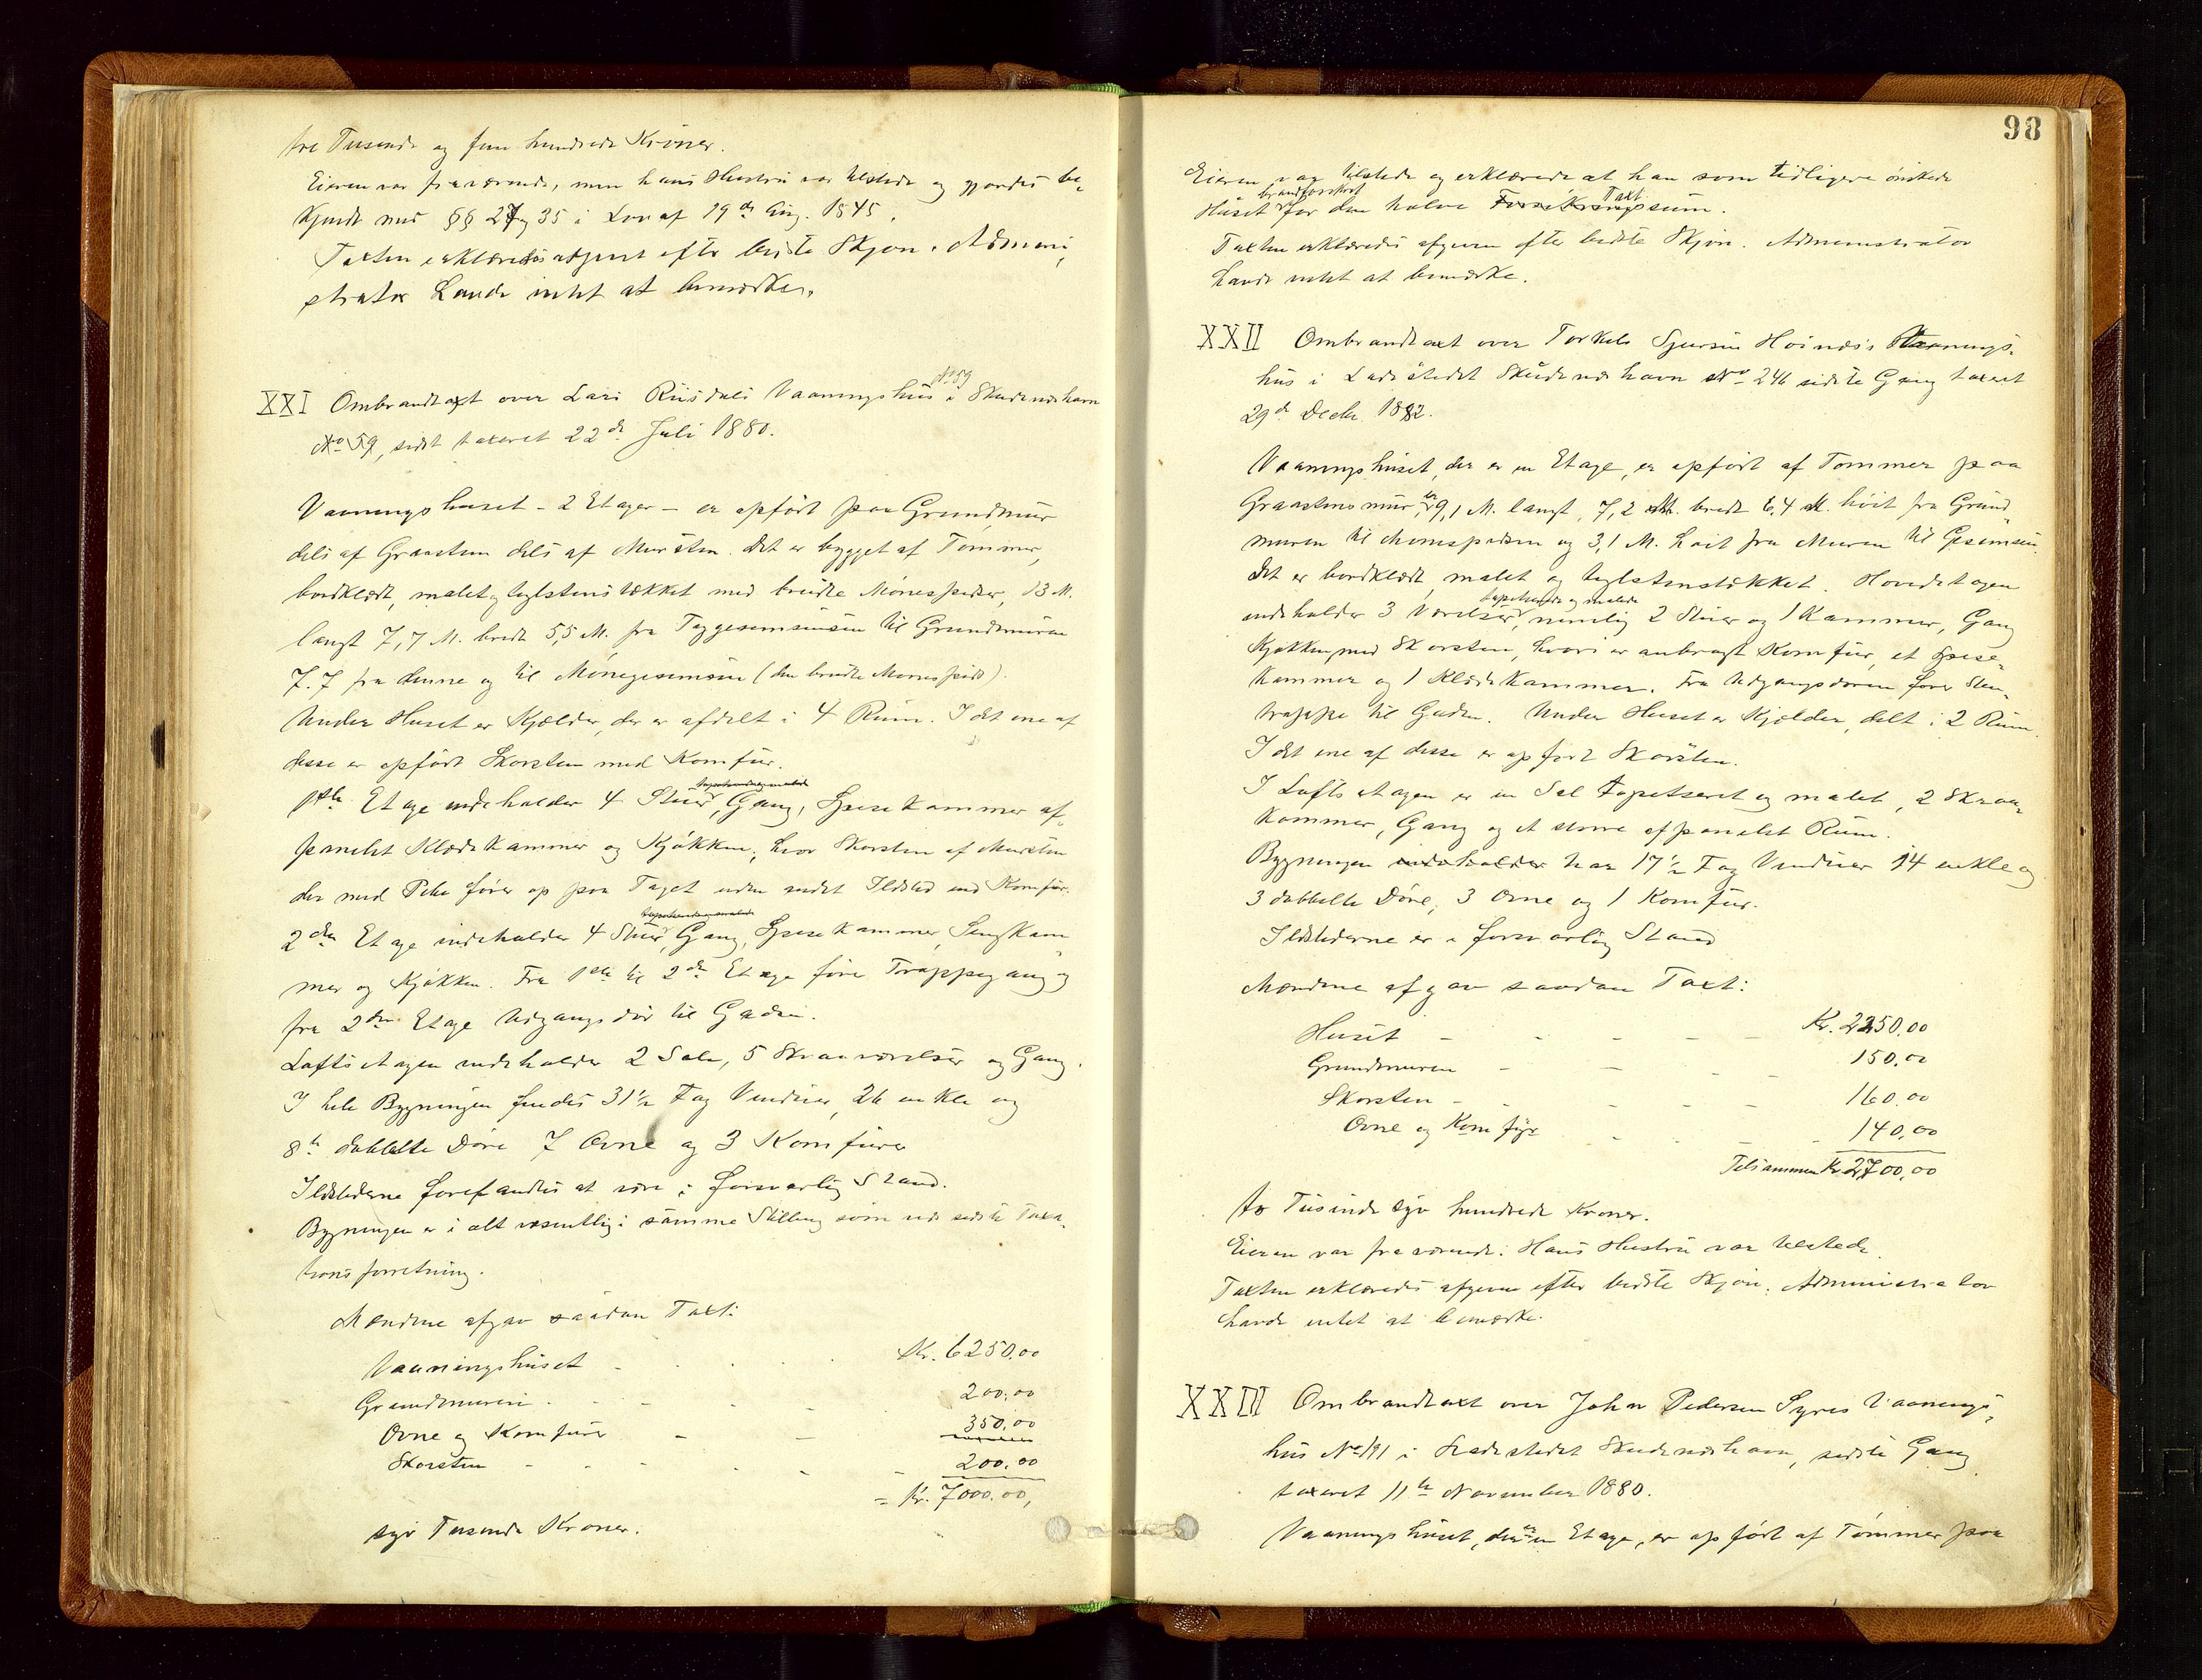 tre Tusende og fem hundrede Kroner.
Eieren var fraværende, men hans Hustru var tilstede og gjordes be-
kjendt med §§ 27 og 35 i Lov af 19de Aug. 1845.
Taxten erklæredes afgivet efter bedste Skjøn. Admini-
strator havde intet at bemærke.
XXI Ombrandtaxt over Lars Riisdals Vaaningshus No 59 i Skudeneshavn
No 59, sidst taxeret 22de Juli 1880.
Vaaningshuset - 2 Etager - er opført paa Grundmur
dels af Graasten dels af Mursten. Det er bygget af Tømmer,
bordklædt, malet og teglstenstækket med brudte Mønespidser, 13 M.
langt 7,7 M. bredt 5,5 M. fra Taggesimsen til Grundmuren
7.7 fra denne og til Mønegesimsen (den brudte Mønespids).
Under Huset er Kjælder, der er afdelt i 4 Rum. I det ene af
disse er opført Skorsten med Komfur.
1ste Etage indeholder 4 Stuer, Gang, Spisekammer af-
panelet Klædekammer og Kjøkken, hvor Skorsten af Mursten
der med Pibe fører op paa Taget uden andet Ildsted end Komfur.
2den Etage indeholder 4 Stuer, Gang, Spisekammer, Sengkam
mer og Kjøkken. Fra 1ste til 2den Etage fører Trappegang og
fra 2den Etage Udgangsdør til Gaden.
Loftsetagen indeholder 2 Sale, 5 Skraaværelser og Gang.
I hele Bygningen findes 31½ Fag Vinduer, 26 enkle og
8te dobbelte Døre 7 Ovne og 3 Komfurer
Ildstederne forefandtes at være i forsvarlig Stand.
Bygningen er i alt væsentlig i samme Stilling som ved sidste Taxa-
tionsforretning.
Mændene afgav saadan Taxt:
Vaaningshuset - - - - Kr. 6250.00
Grundmuren - - - - 200.00
Ovne og Komfurer - - 350.00
Skorsten - - - - 200.00
= Kr. 7000.00,
syv Tusende Kroner.
98
Eieren var tilstede og erklærede at han som tidligere ønskede
Huset brandforsikret for den halve Forsikrings Taxtsum.
Taxten erklæredes afgiven efter bedste Skjøn. Administrator
havde intet at bemærke.
XXII Ombrandtaxt over Torkels Sjursen Høinæs's Vaanings-
hus i Ladestedet Skudeneshavn No 246 sidste Gang taxeret
29de Decbr 1882.
Vaaningshuset, der er en Etage, er opført af Tømmer paa
Graastensmur, er 9,1 M. langt, 7,2 M. bredt 6,4 M. høit fra Grund-
muren til Mønespidsen og 3,1 M. høit fra Muren til Gesimsen.
Det er bordklædt, malet og teglstenstækket. Hovedetagen
indeholder 3 Værelser, tapetserede og malede nemlig 2 Stuer og 1 Kammer, Gang
Kjøkken, med Skorsten, hvori er anbragt Komfur, et Spise-
kammer og 1 Klædekammer. Fra Udgangsdøren fører Sten-
trappe til Gaden. Under Huset er Kjælder, delt i 2 Rum.
I det ene af disse er opført Skorsten.
I Loftsetagen er en Sal tapetseret og malet, 2 Skraa-
kammer, Gang og et større afpanelet Rum.
Bygningen indeholder har 17½ Fag Vinduer 14 enkle og
3 dobbelte Døre, 3 Ovne og 1 Komfur.
Ildstederne er i forsvarlig Stand
Mændene afgav saadan Taxt:
Huset - - - - - Kr. 2250.00
Grundmuren - - - - 150.00
Skorsten - - - - 160.00
Ovne og Komfyr - - - 140.00
Tilsammen Kr. 2700,00
to Tusinde syv hundrede Kroner.
Eieren var fraværende. Hans Hustru var tilstede.
Taxten erklæredes afgiven efter bedste Skjøn. Administrator
havde intet at bemærke.
XXIII Ombrandtaxt over John Pedersen Syres Vaanings-
hus No 191 i Ladestedet Skudeneshavn, sidste Gang
taxeret 11te November 1880.
Vaaningshuset, der er en Etage, er opført af Tømmer paa